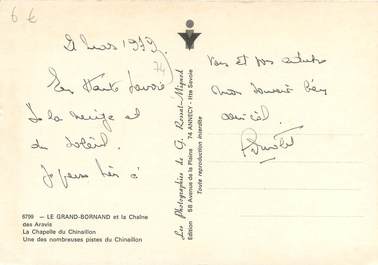 6 €
2 Mars 1979
74
En Haute Savoie
De la neige et
du soleil.
Je pense très à
vous et vos
mon souvenir bien
amical.
6799 — LE GRAND-BORNAND et la Chaîne
des Aravis
La Chapelle du Chinaillon
Une des nombreuses pistes du Chinaillon
Les Photographies de G. Rosset-Mignod
Edition 58 Avenue de la Plaine 74 ANNECY - Hte Savoie
Toute reproduction interdite